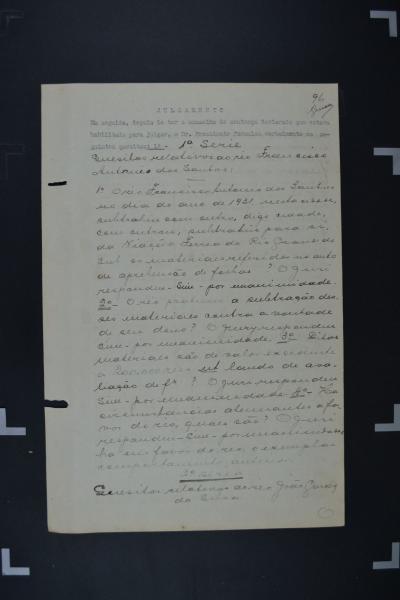 96
JULGAMENTO
Em seguida, depois de ter o conselho de sentença declarado que estava
habilitado para julgar, o Dr. Presidente formulou verbalmente os se-
guintes quesitos: 1ª Serie
Quesitos relativos ao reo Francisco
Antonio dos Santos:
1º O reo Francisco Antonio dos Santos
no dia do ano de 1931, nesta
subtrahiu com outro, digo cidade,
com outros, subtrahiu para si,
da Viação Ferrea do Rio Grande do
Sul os materiais referidos no auto
de apreensão de folhas ? O juri
respondeu - Sim - por unanimidade.
2º - O reo praticou a subtração des-
ses materiais contra a vontade
de seu dono? O Jury respondeu
Sim - por unanimidade. 3º Ditos
materiaes são de valor excedente
a 200.000 reis laudo de ava-
liação de fs ? O juri respondeu
Sim - por unanimidade. 4º - Ha
circumstancias atenuantes a fa-
vor do reo, quaes são? O juri
respondeu - Sim - por unanimidade,
ha em favor do reo, o exemplar
comportamento anterior.
2ª Serie
Quesitos relativos ao reo João
da Silva